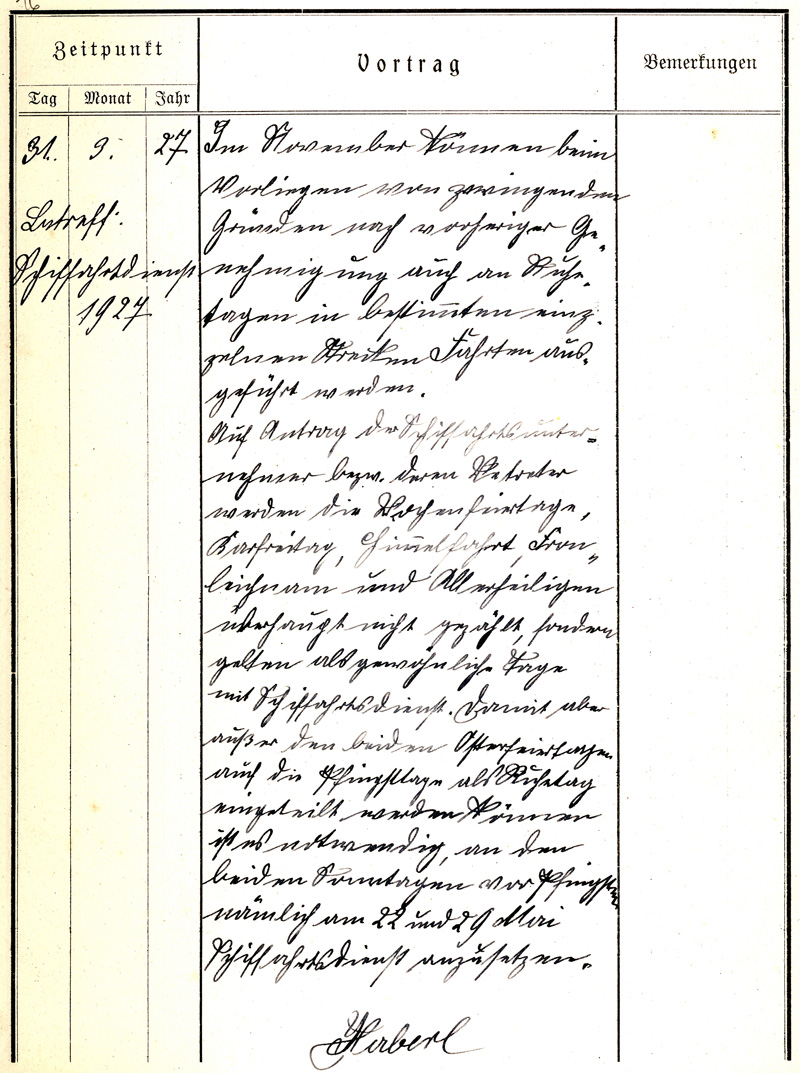 Zeitpunkt
Vortrag
Bemerkungen
Tag Monat Jahr
31. 3. 27
Betreff:
Schiffahrtdienst
1927
Im November können beim
Vorliegen von zwingenden
Gründen nach vorheriger Ge„
nehmigung auch an Ruhe„
tagen in bestimmten einz„
zelnen Strecken Fahrten aus„
geführt werden.
Auf Antrag der Schiffahrtsunter=
nehmer bezw. deren Vetreter
werden die Wochenfeiertage,
Karfreitag, Himmelfahrt, Fron„
leichnam und Allerheiligen
überhaupt nicht gezählt, sondern
gelten als gewöhnliche Tage
mit Schiffahrtsdienst. Damit aber
außer den beiden Osterfeiertagen
auch die Pfingsttage als Ruhetag
eingeteilt werden können
ist es notwendig, an den
beiden Sonntagen vor Pfingsten
nämlich am 22 und 29 Mai
Schiffahrtsdienst anzusetzen.
Haberl